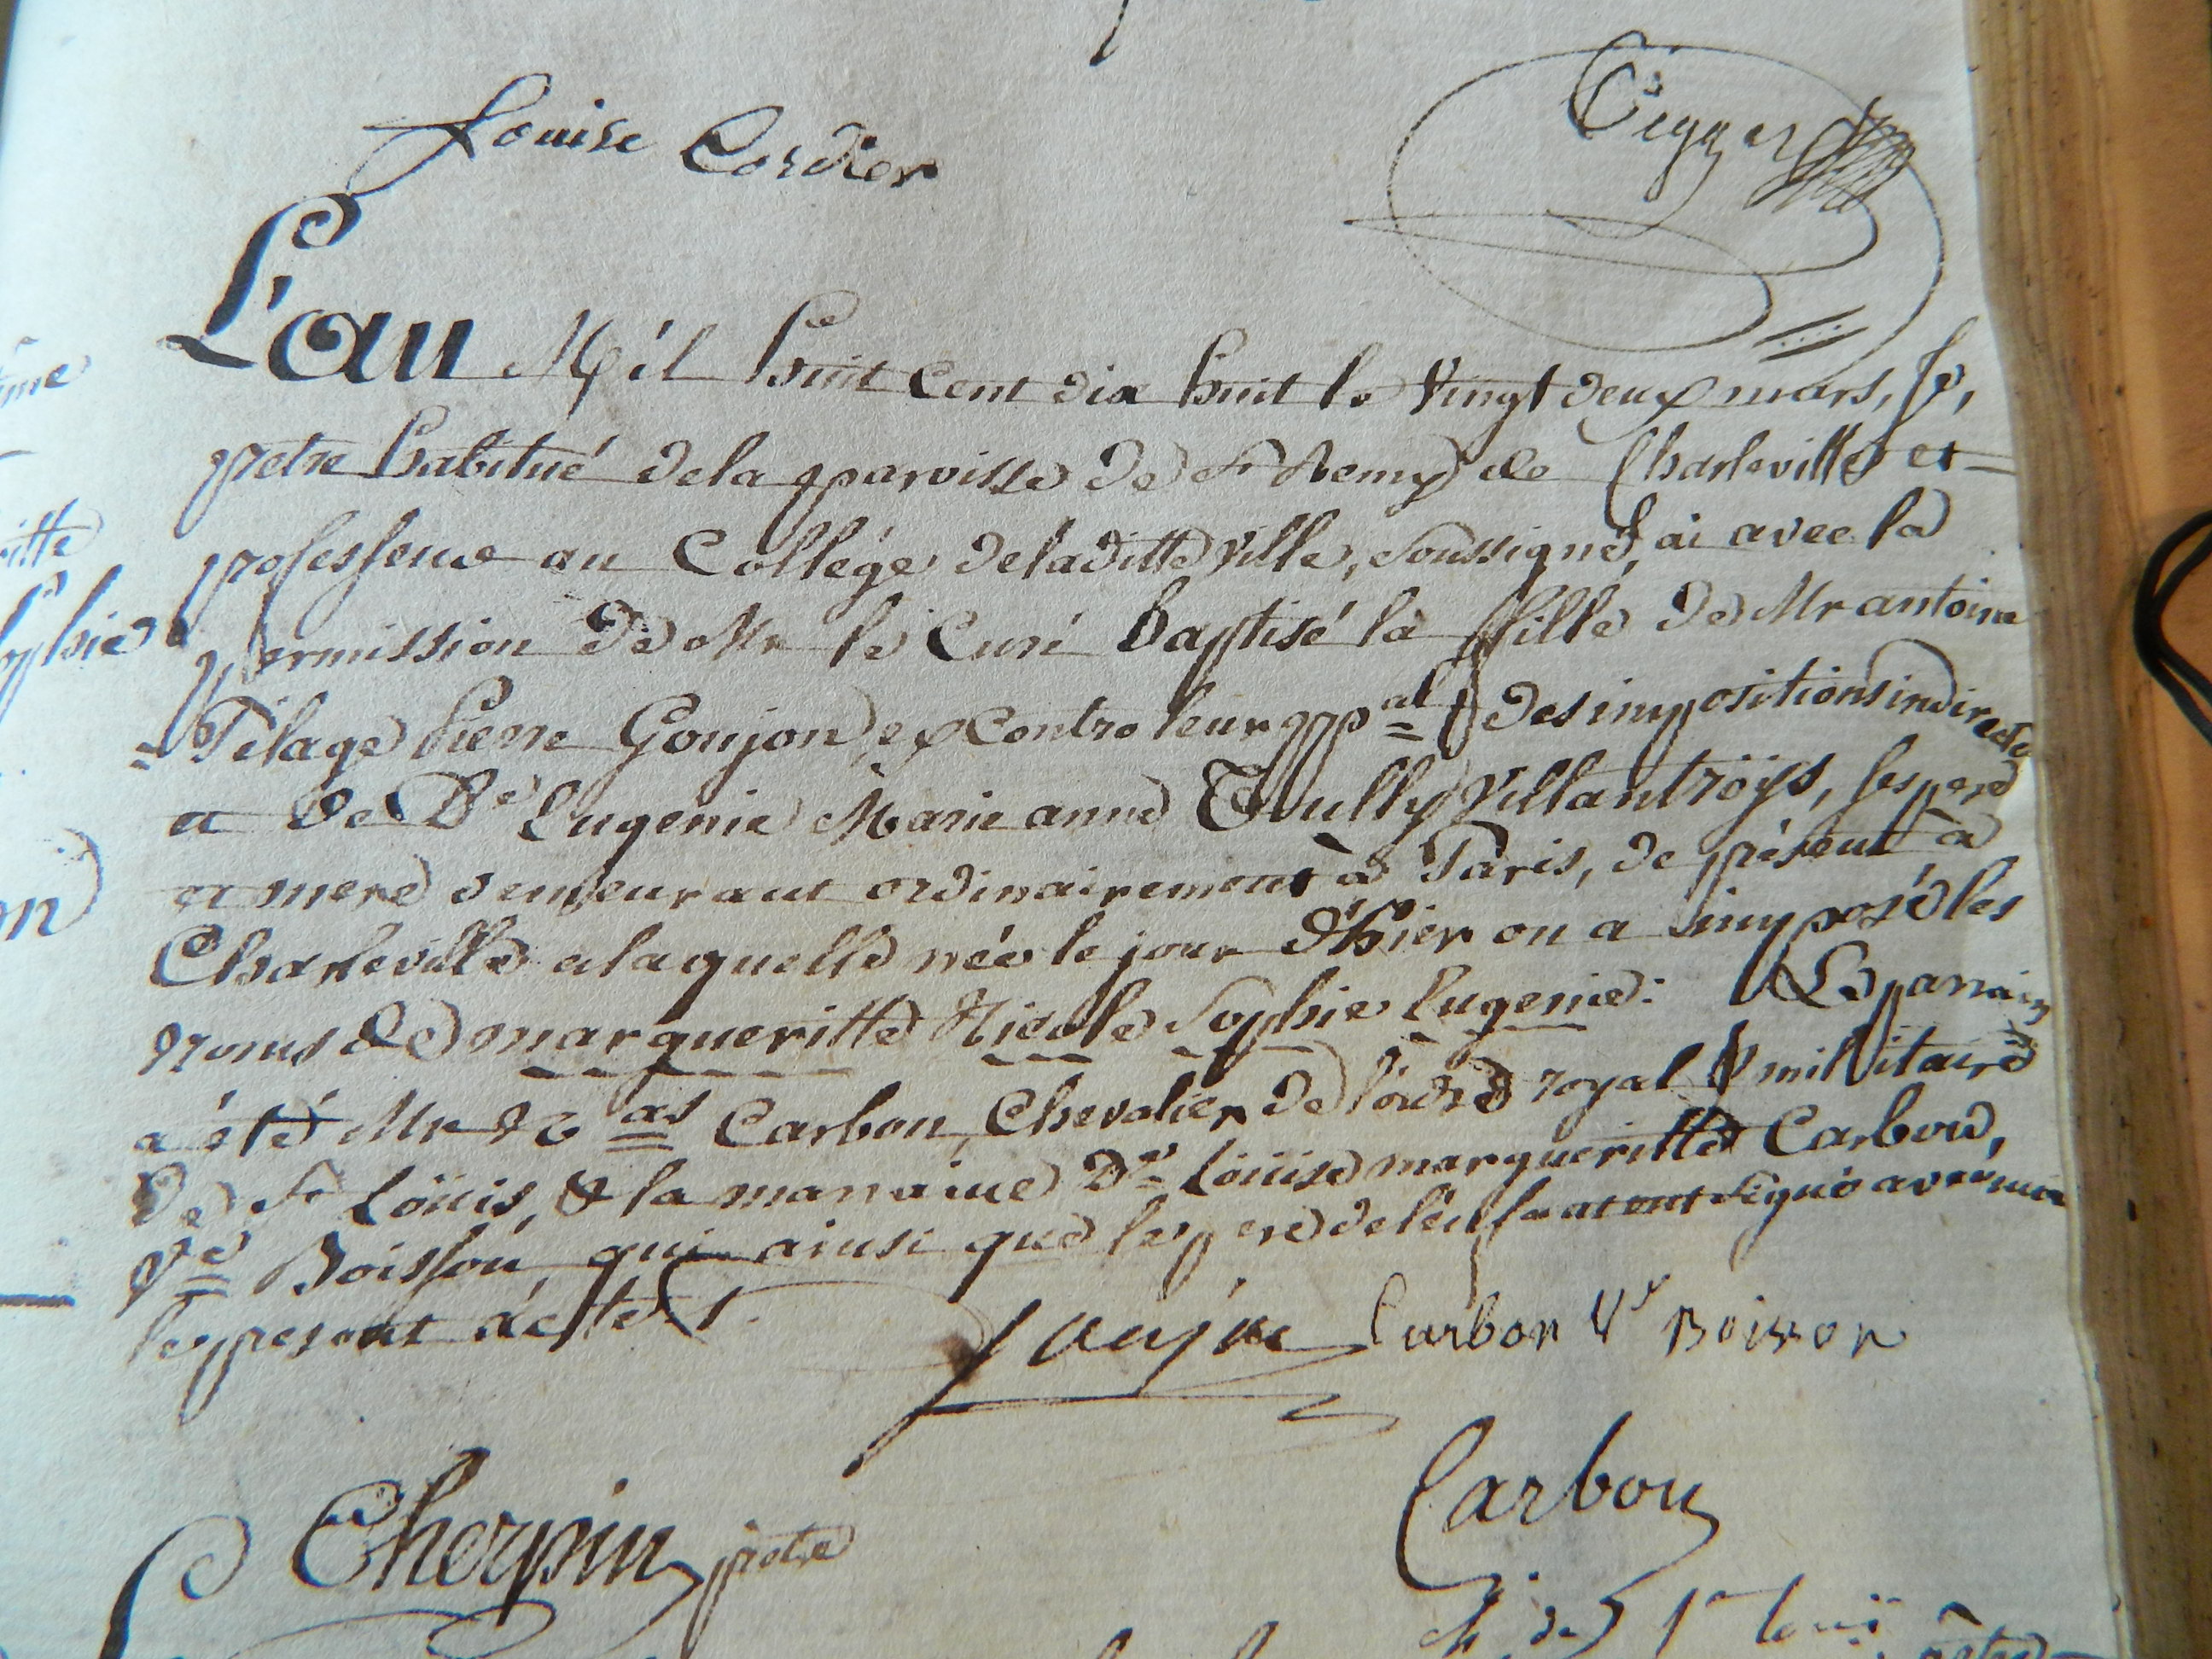 Louise Cordier
L'an Mil huit cent dix huit le vingt deux mars, Je,
pretre habitué dela parroisse de St Remy de Charleville et
professeur au Collége deladitte ville, soussigné, ai avec la
permission de Mr le Curé baptisé la fille de Mr antoine
Pélage Pierre Goujon, ex controleur ppal des impositions indirectes
et de De Eugenie Marie anne Tully Villantroÿs, ses pere
et mere demeurant ordinairement à Paris, de présent à
Charleville a laquelle née le jour d'hier on a imposé les
noms de margueritte Nicole Sophie Eugenie: Le parrain
a été Mr as Carbon, Chevalier de l'ordre royal & militaire
de St Loüis, & la marraine De Loüise margueritte Carbon,
Ve Boisson, qui ainsi que le pere de l'enfant ont signé avec moi
le present acte /.
Goujon Carbon Ve Boisson
Carbon
Cherpin pretre
ch de St Louis